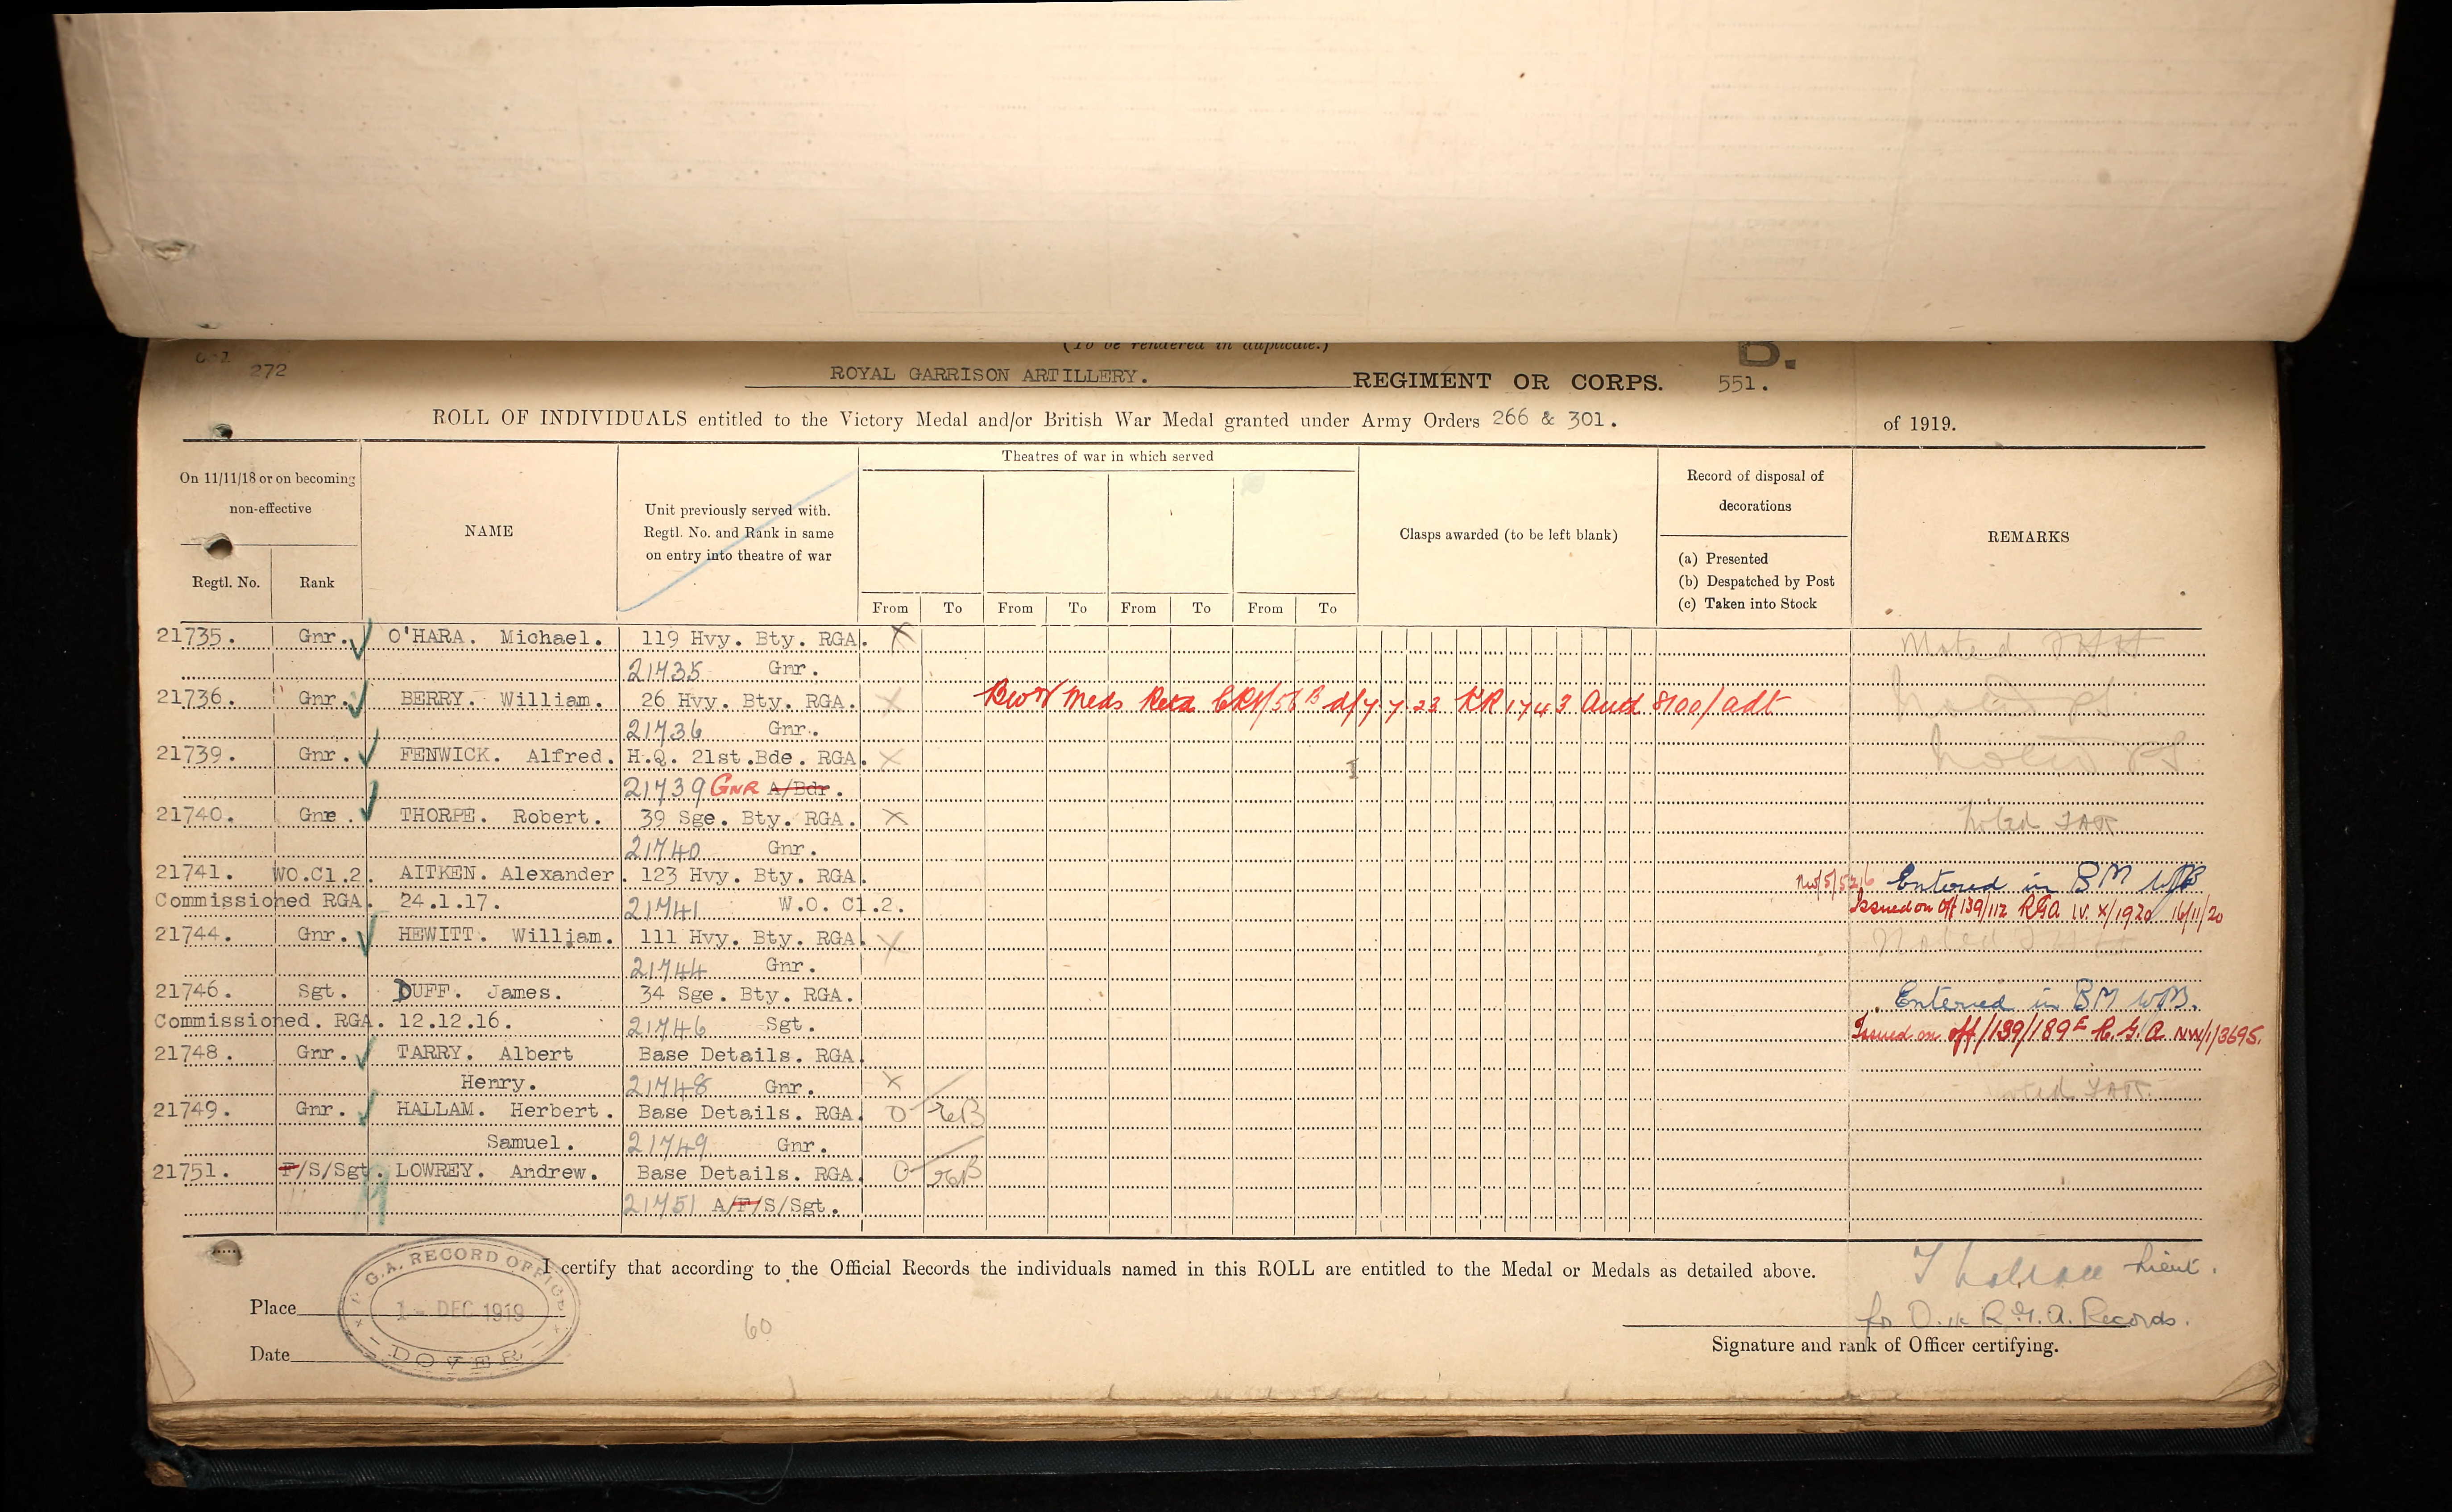 (To be rendered in duplicate.)
272
B.
ROYAL GARRISON ARTILLERY. REGIMENT OR CORPS. 551.
ROLL OF INDIVIDUALS entitled to the Victory Medal and/or British War Medal granted under Army Orders 266 & 301. of 1919.
On 11/11/18 or on becoming non-effective
Regtl. No.
Rank
NAME
Unit previously served with. Regtl. No. and Rank in same on entry into theatre of war
Theatres of war in which served
From To From To From To From To
Clasps awarded (to be left blank)
Record of disposal of decorations
(a) Presented
(b) Despatched by Post
(c) Taken into Stock
REMARKS
21735. Gnr. O'HARA. Michael. 119 Hvy. Bty. RGA. X Noted
21735 Gnr.
21736. Gnr. BERRY. William. 26 Hvy. Bty. RGA. X BW&V Meds Retd 7 7 23 KR 1743 Auth 8100/adt Noted
21736 Gnr.
21739. Gnr. FENWICK. Alfred. H.Q. 21st.Bde. RGA. X Noted
21739 GNR A/Bdr.
21740. Gnr. THORPE. Robert. 39 Sge. Bty. RGA. X Noted
21740 Gnr.
21741. WO.Cl.2. AITKEN. Alexander. 123 Hvy. Bty. RGA. Entered in BM
Commissioned RGA. 24.1.17. 21741 W.O. Cl.2. Issued on off 139/112 RGA 16/11/20
21744. Gnr. HEWITT. William. 111 Hvy. Bty. RGA. X Noted
21744 Gnr.
21746. Sgt. DUFF. James. 34 Sge. Bty. RGA. Entered in BM WB.
Commissioned. RGA. 12.12.16. 21746 Sgt. Issued on off/139/189E R.G.A. NW/1/3695.
21748. Gnr. TARRY. Albert Base Details. RGA.
Henry. 21748 Gnr. X noted
21749. Gnr. HALLAM. Herbert. Base Details. RGA.
Samuel. 21749 Gnr.
21751. F/S/Sgt. LOWREY. Andrew. Base Details. RGA.
21751 A/F/S/Sgt.
I certify that according to the Official Records the individuals named in this ROLL are entitled to the Medal or Medals as detailed above.
R.G.A. RECORD OFFICE
1 - DEC 1919
DOVER
Place
Date
60
Lieut.
for O. i/c R.G.A. Records.
Signature and rank of Officer certifying.